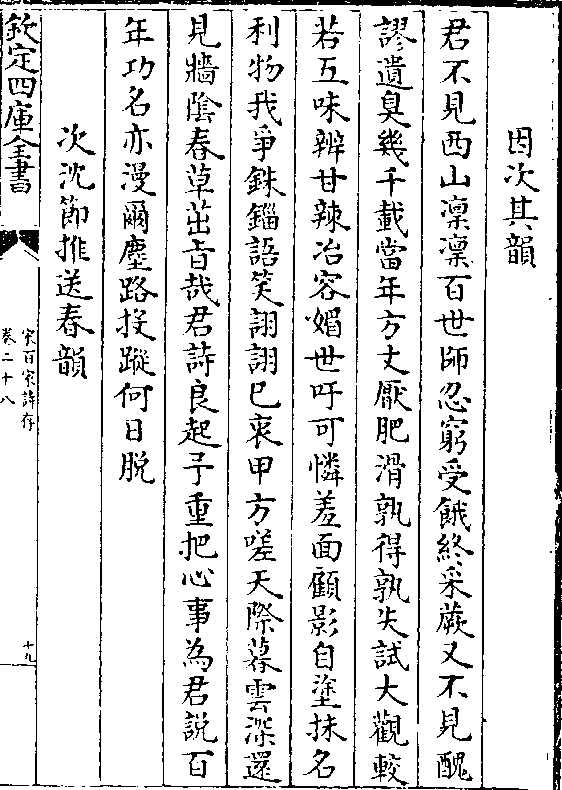 因次其韻
君不見西山凜凜百世師忍窮受餓終采蕨又不見醜
謬遺臭幾千載當年方丈厭肥滑孰得孰失試大觀較
若五味辨甘辣冶容媚世吁可憐羞面顧影自塗抹名
利物我爭銖錙語笑詡詡已衷甲方嗟天際暮雲深還
見牆陰春草茁旨哉君詩良起予重把心事為君說百
年功名亦漫爾塵路投蹤何日脫
次沈節推送春韻
欽定四庫全書
宋百家詩存
卷二十八
十九